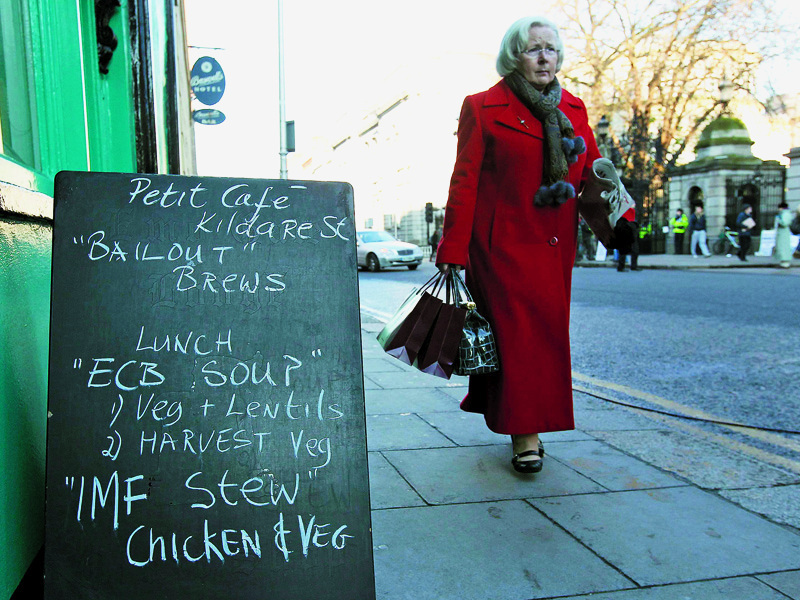 Petit Café
Kildare St
"BAILOUT"
BREWS
LUNCH
"ECB SOUP"
1) Veg + Lentils
2) HARVEST Veg
"IMF Stew"
CHICKEN & VEG
HOTEL